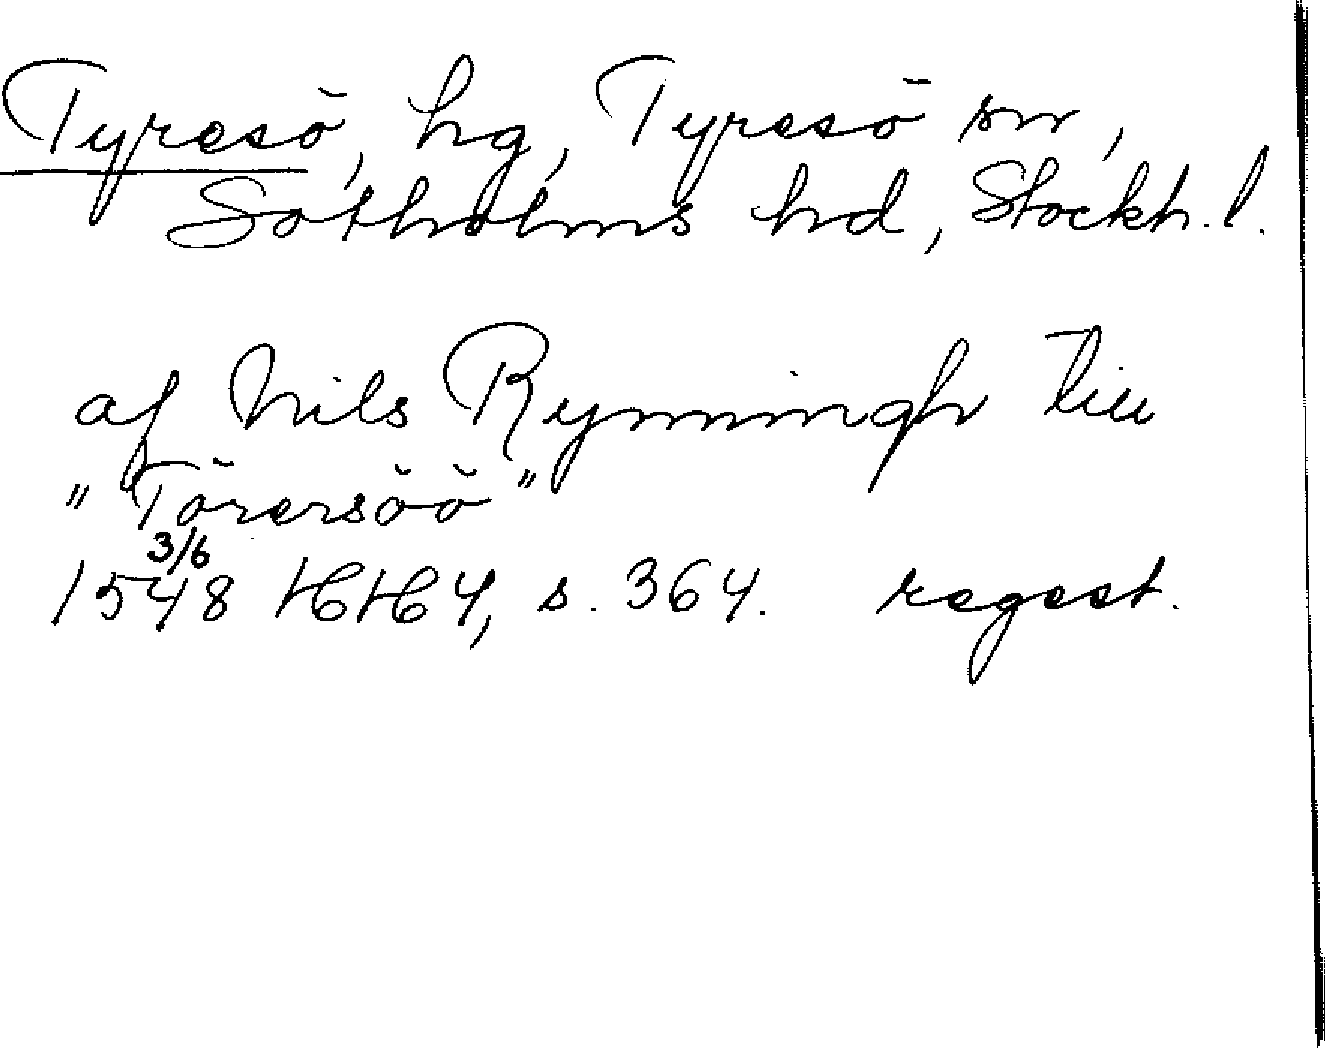 Tyresö, hg, Tyresö sn,
Sotholms hd, Stockh. l.
af Nils Rynningh till
"Törersöö"
3/6
1548 HH 4, s. 364. regest.